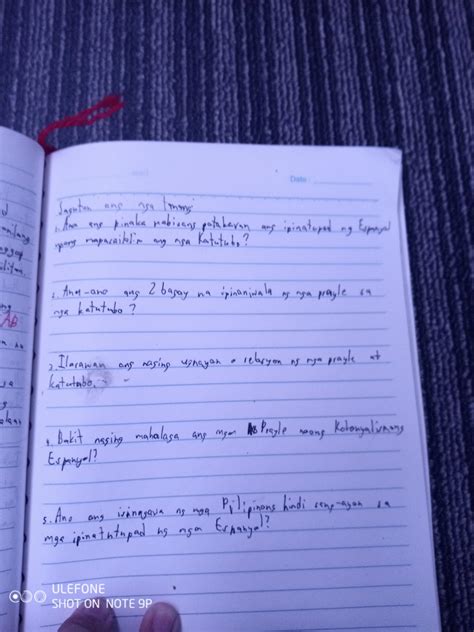 Date:
Sagutin ang mga tanong
1. Ano ang pinaka mabisang patakaran ang ipinatupad ng Espanyol
upang mapasailalim ang mga Katutubo?
2. Ano-ano ang 2 bagay na ipinaniwala ng mga prayle sa
mga katutubo?
3. Ilarawan ang naging ugnayan o relasyon ng mga prayle at
katutubo.
4. Bakit naging mahalaga ang mga Prayle noong Kolonyalismong
Espanyol?
5. Ano ang isinagawa ng mga Pilipinong hindi sang-ayon sa
mga ipinatutupad ng mga Espanyol?
ULEFONE
SHOT ON NOTE 9P